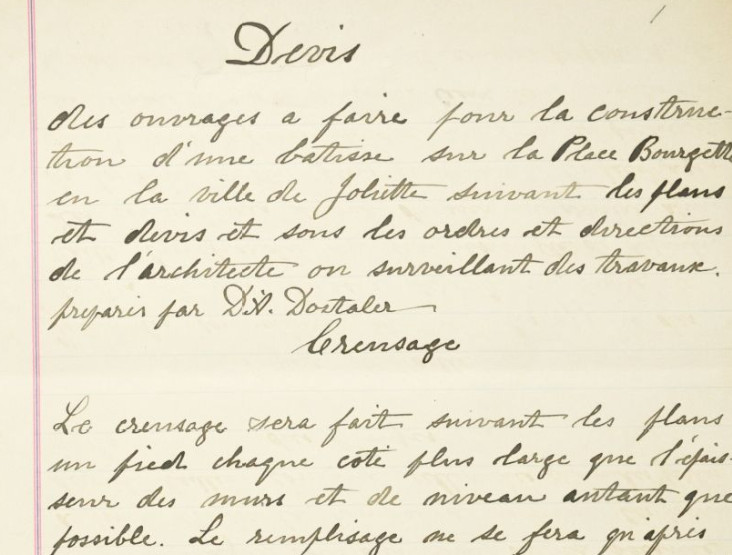 Devis
des ouvrages a faire pour la construc-
tion d'une batisse sur la Place Bourgette
en la ville de Joliette suivant les plans
et devis et sous les ordres et directions
de l'architecte ou surveillant des travaux.
preparés par D.A. Dostaler
Creusage
Le creusage sera fait suivant les plans
un pied chaque coté plus large que l'épais-
seur des murs et de niveau autant que
possible. Le remplisage ne se fera qu'après